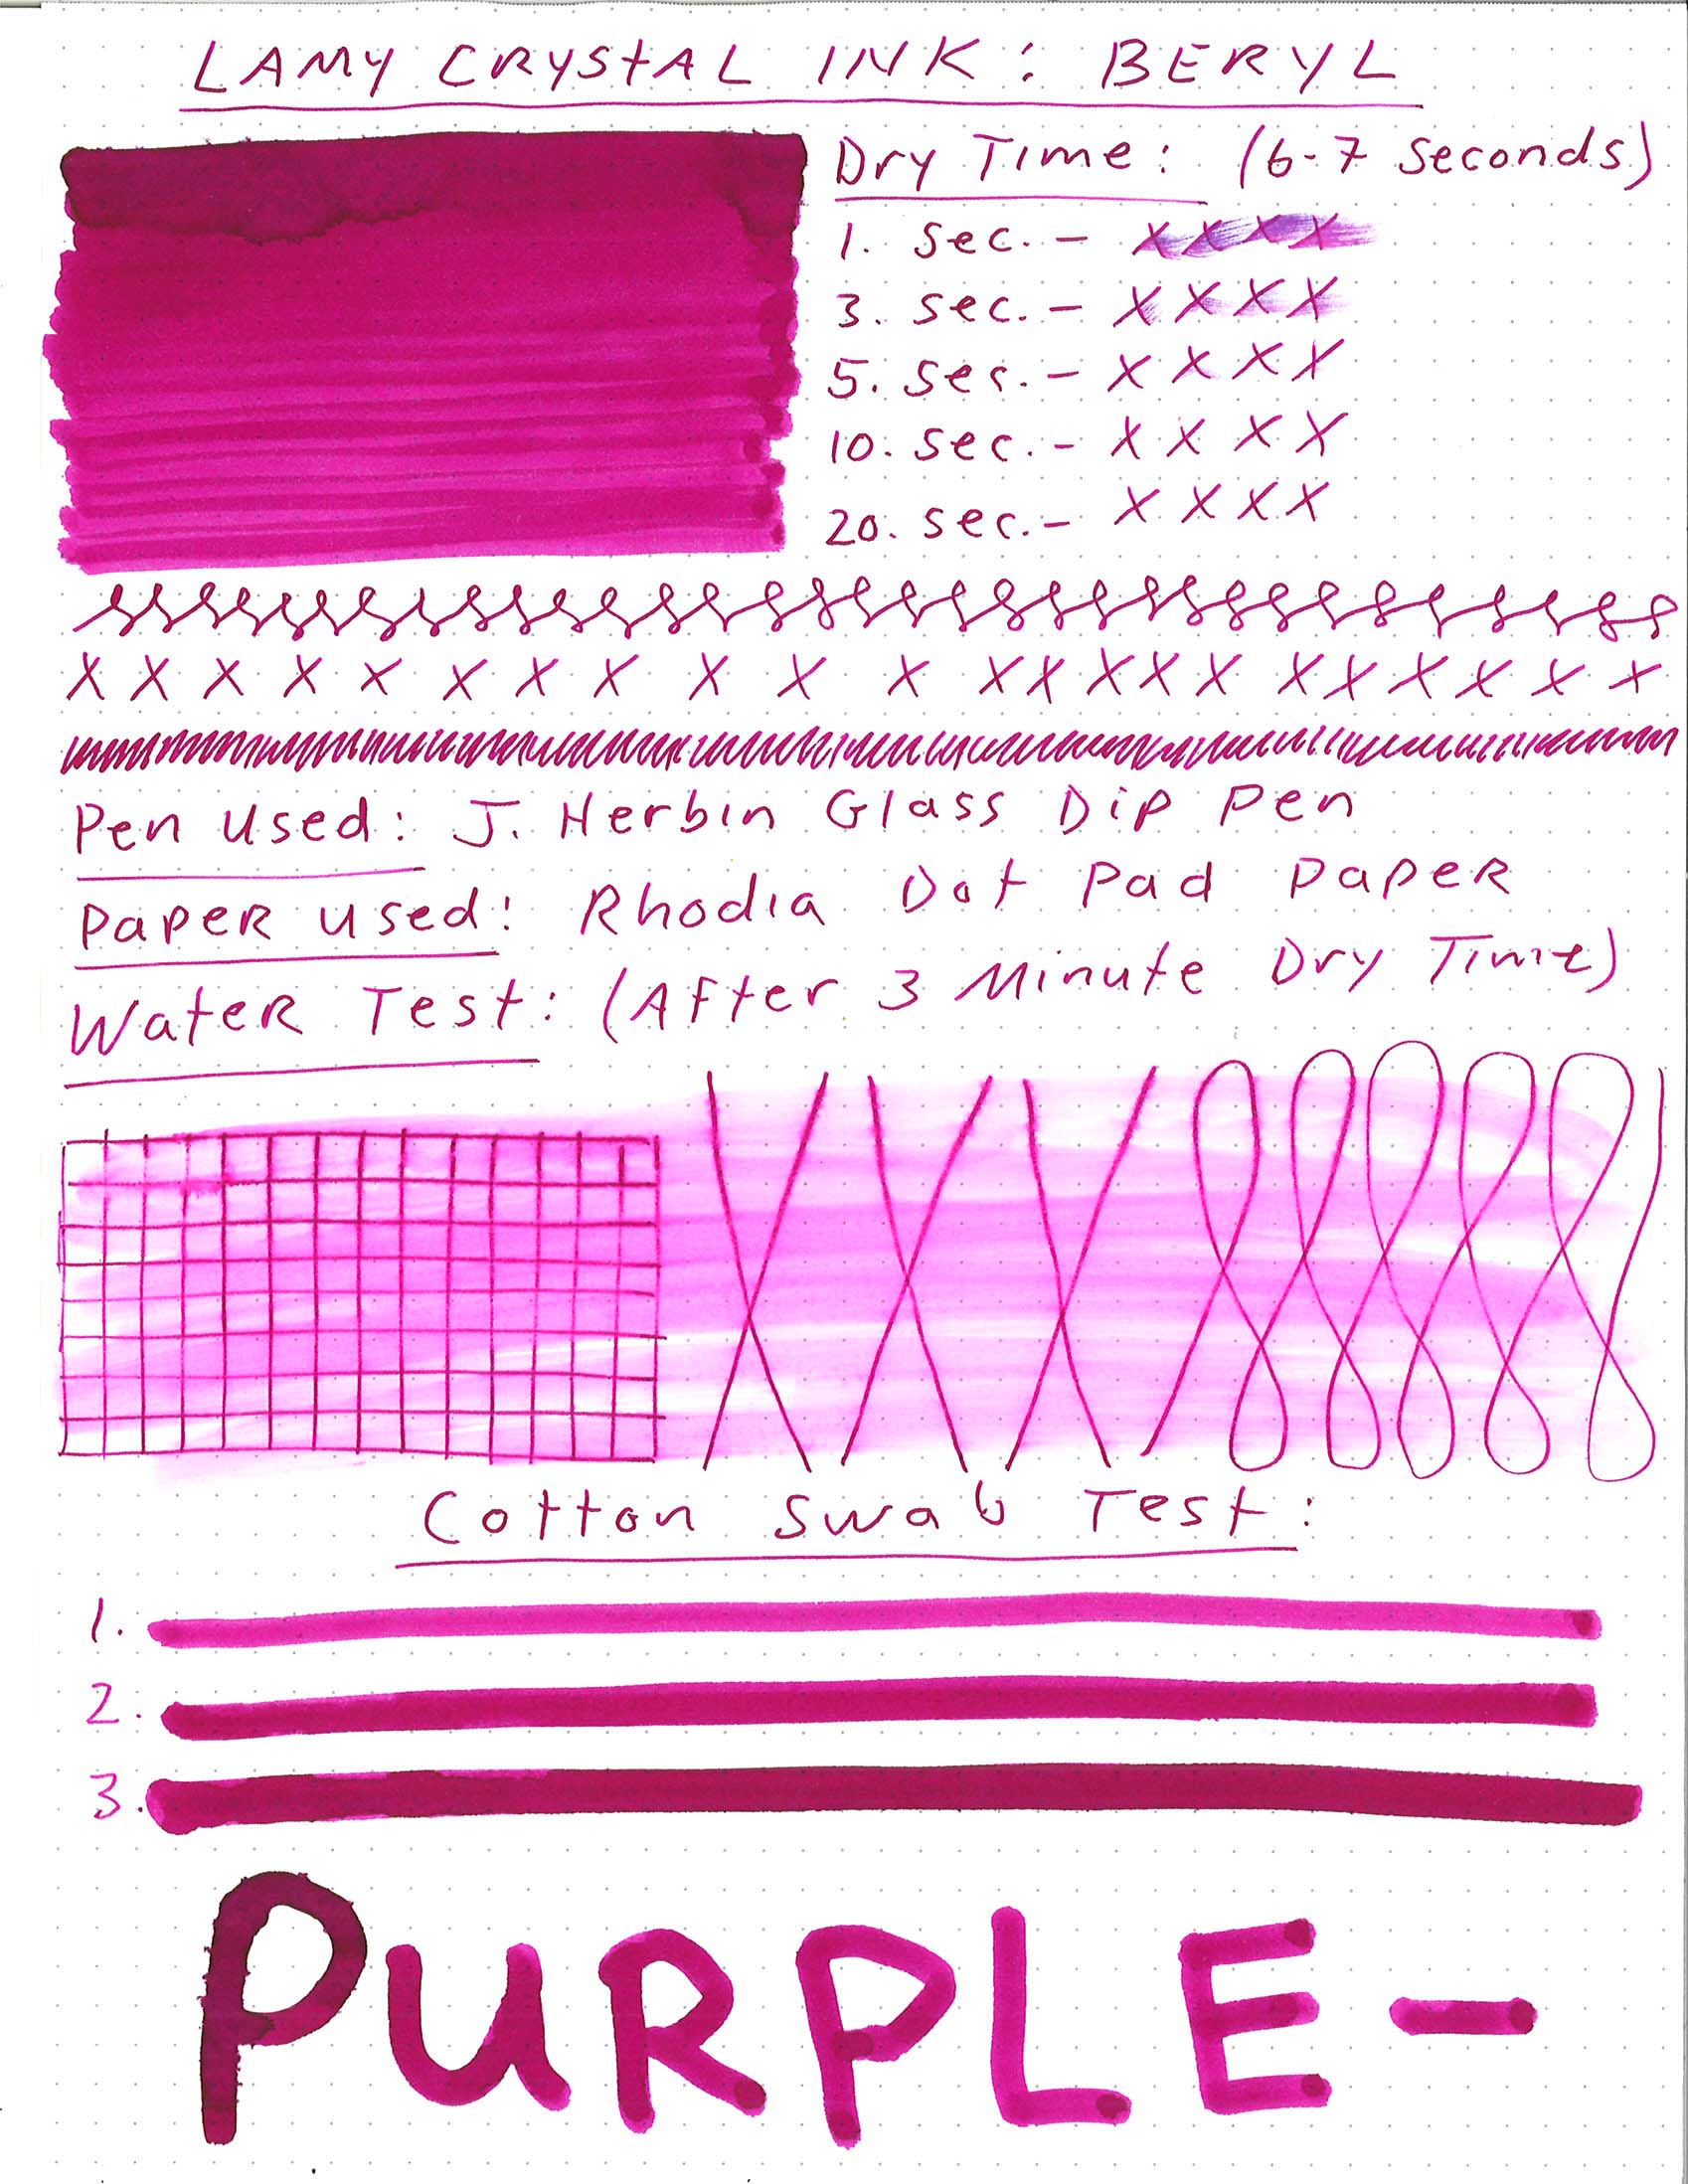 LAMY CRYStAL INK: BERYL
Dry Time: (6-7 seconds)
1. sec. - x x x x
3. sec. - x x x x
5. sec. - x x x x
10. sec. - x x x x
20. sec. - x x x x
X X X X X X X X X X X X X X X X X X X X X X
Pen Used: J. Herbin Glass Dip Pen
PaPeR used: Rhodia Dot Pad PaPeR
WateR Test: (After 3 Minute Dry Time)
Cotton Swab Test:
1.
2.
3.
PURPLE-